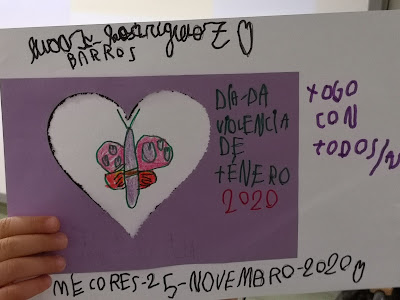 BARROS
DÍA-DA
VIOLENCIA
DE
XÉNERO
2020
XOGO
CON
TODOS
MECORES-25-NOVEMBRO-2020